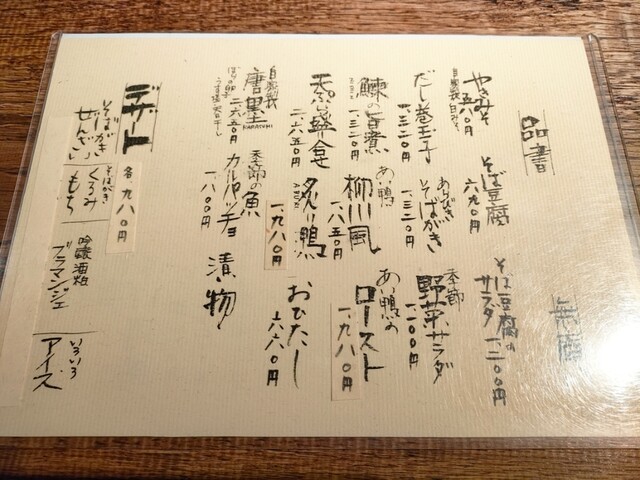 品書
無庵
やきみそ
自家製 白みそ
五八〇円
そば豆腐
六九〇円
そば豆腐の
サラダ
一、二〇〇円
だし巻玉子
一、三二〇円
あらびき
そばがき
一、三二〇円
季節
野菜サラダ
一、一〇〇円
鰊の旨煮
一、三二〇円
あい鴨
柳川風
一、八五〇円
あい鴨の
ロースト
一、九八〇円
天ぷら盛合せ
二、六五〇円
炙り鴨
一、九八〇円
おひたし
六六〇円
自家製
唐墨
KARASUMI
二、六五〇円
季節の魚
カルパッチョ
一、八〇〇円
漬物
デザート
各 九八〇円
そばがき
ぜんざい
そばがき
くるみ
もち
吟醸酒粕
ブラマンジェ
いろいろ
アイス